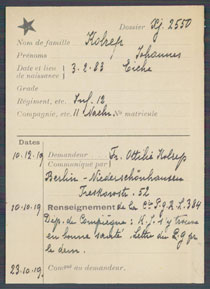 Dossier Rj. 2550
Nom de famille Kolrep
Prénoms Johannes
Date et lieu
de naissance 3.2.83 Eiche
Grade
Régiment, etc. Inf. 12
Compagnie, etc. 11 No matricule
Dates
10.12.19 Demandeur : Fr. Ottilie Kolrep
Communiqué par
Berlin - Niederschönhausen
52
10.10.19 Renseignement de la P.G.R.L. 384
Dép. de Compiègne : K. J. s'y trouve
en bonne santé. Lettre du P.G. pr
le dem.
23.10.19 Comm. au demandeur.